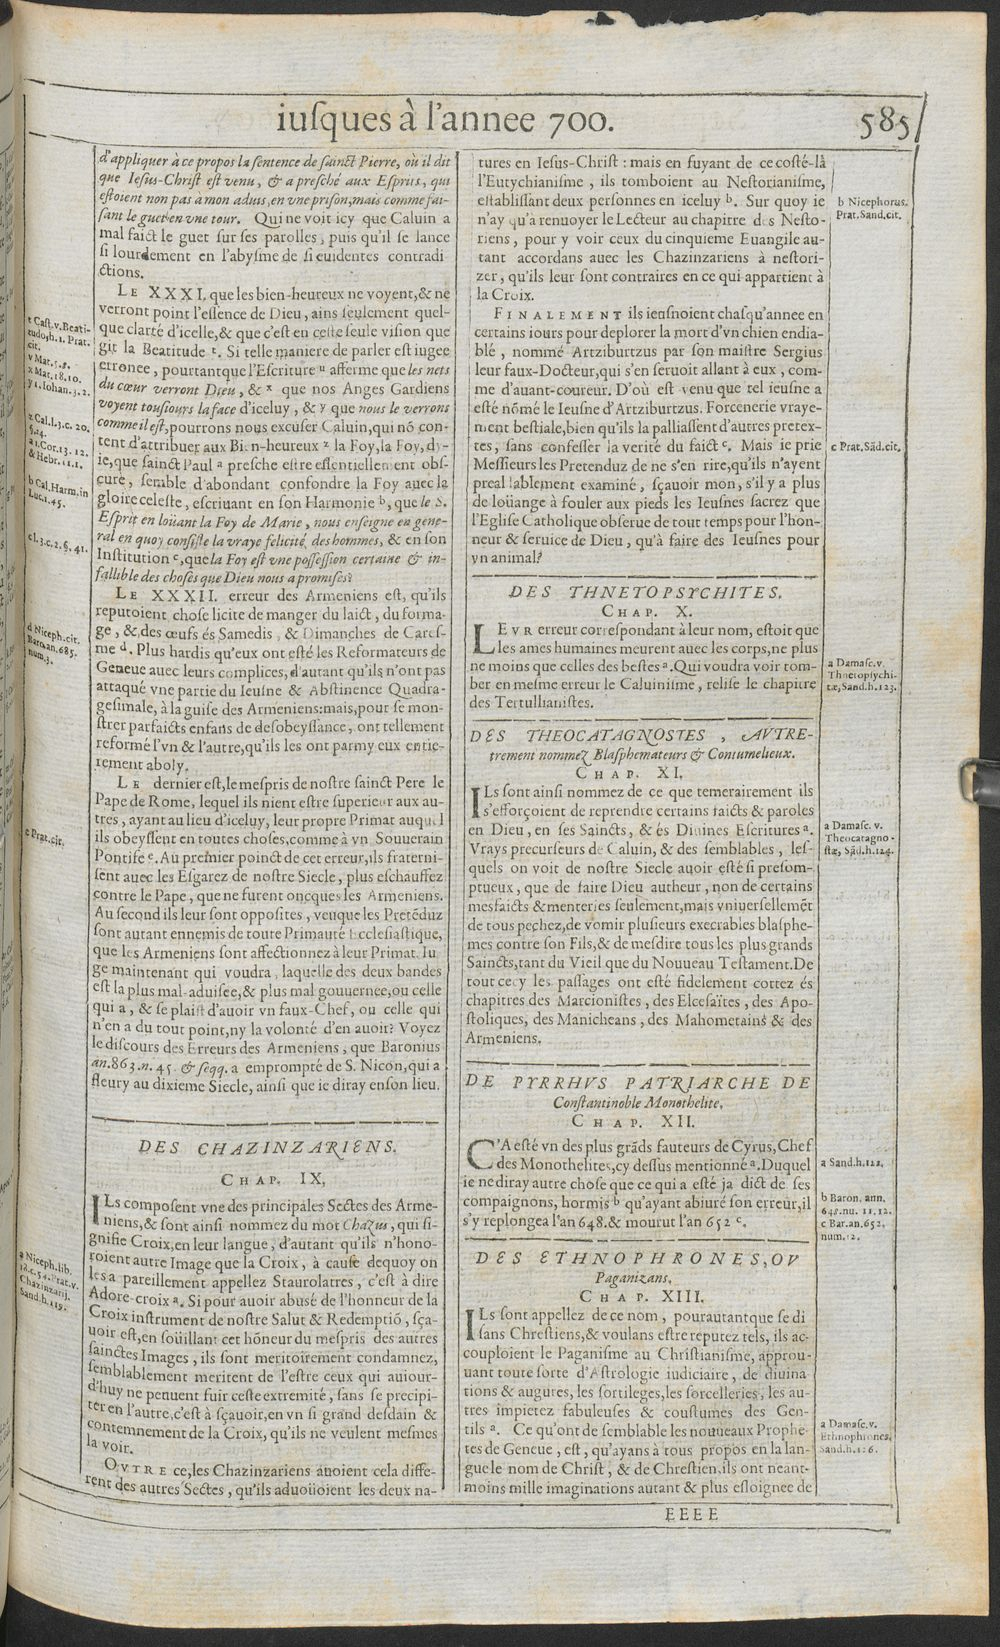 iusques à l'annee 700.
585
d'appliquer à ce propos la sentence de sainct Pierre, où il dit
que Iesus-Christ est venu, & a presché aux Esprits, qui
estoient non pas à mon aduis, en vne prison, mais comme fai-
sant le guet en vne tour. Qui ne voit icy que Caluin a
mal faict le guet sur ses parolles, puis qu'il se lance
si lourdement en l'abysme de si euidentes contradi
ctions.
LE XXXI. que les bien-heureux ne voyent, & ne
verront point l'essence de Dieu, ains seulement quel-
que clarté d'icelle, & que c'est en ceste seule vision que
git la Beatitude t. Si telle maniere de parler est iugee
erronee, pourtant que l'Escriture u afferme que les nets
du cœur verront Dieu, & x que nos Anges Gardiens
voyent tousiours la face d'iceluy, & y que nous le verrons
comme il est, pourrons nous excuser Caluin, qui nō con-
tent d'attribuer aux Bien-heureux z la Foy, la Foy, dy-
ie, que sainct Paul a presche estre essentiellement obs-
cure, semble d'abondant confondre la Foy auec la
gloire celeste, escriuant en son Harmonie b, que le S.
Esprit en loüant la Foy de Marie, nous enseigne en gene-
ral en quoy consiste la vraye felicité des hommes, & en son
Institution c, que la Foy est vne possession certaine & in-
fallible des choses que Dieu nous a promises?
LE XXXII. erreur des Armeniens est, qu'ils
reputoient chose licite de manger du laict, du forma-
ge, & des œufs és Samedis, & Dimanches de Cares-
me d. Plus hardis qu'eux ont esté les Reformateurs de
Geneue auec leurs complices, d'autant qu'ils n'ont pas
attaqué vne partie du Ieusne & Abstinence Quadra-
gesimale, à la guise des Armeniens: mais, pour se mon-
strer parfaicts enfans de desobeyssance, ont tellement
reformé l'vn & l'autre, qu'ils les ont parmy eux entie-
rement aboly.
LE dernier est, le mespris de nostre sainct Pere le
Pape de Rome, lequel ils nient estre superieur aux au-
tres, ayant au lieu d'iceluy, leur propre Primat auquel
ils obeyssent en toutes choses, comme à vn Souuerain
Pontife e. Au premier poinct de cet erreur, ils fraterni-
sent auec les Esgarez de nostre Siecle, plus eschauffez
contre le Pape, que ne furent oncques les Armeniens.
Au second ils leur sont opposites, veu que les Pretēduz
sont autant ennemis de toute Primauté Ecclesiastique,
que les Armeniens sont affectionnez à leur Primat. Iu
ge maintenant qui voudra, laquelle des deux bandes
est la plus mal-aduisee, & plus mal gouuernee, ou celle
qui a, & se plaist d'auoir vn faux-Chef, ou celle qui
n'en a du tout point, ny la volonté d'en auoir? Voyez
le discours des Erreurs des Armeniens, que Baronius
an. 863. n. 45. & seqq. a emprompté de S. Nicon, qui a
fleury au dixieme Siecle, ainsi que ie diray en son lieu.
DES CHAZINZARIENS.
CHAP. IX.
ILs composent vne des principales Sectes des Arme-
niens, & sont ainsi nommez du mot Chazus, qui si-
gnifie Croix, en leur langue, d'autant qu'ils n'hono-
roient autre Image que la Croix, à cause dequoy on
les a pareillement appellez Staurolatres, c'est à dire
Adore-croix a. Si pour auoir abusé de l'honneur de la
Croix instrument de nostre Salut & Redemptiō, sça-
uoir est, en soüillant cet hōneur du mespris des autres
sainctes Images, ils sont meritoirement condamnez,
semblablement meritent de l'estre ceux qui auiour-
d'huy ne peuuent fuir ceste extremité, sans se precipi-
ter en l'autre, c'est à sçauoir, en vn si grand desdain &
contemnement de la Croix, qu'ils ne veulent mesmes
la voir.
OVTRE ce, les Chazinzariens auoient cela diffe-
rent des autres Sectes, qu'ils aduoüoient les deux na-
t Cast. v. Beati-
tudo, h. 1. Prat.
cit.
v Mat. 5. 8.
x Mat. 18. 10.
y 1. Iohan. 3. 2.
z Cal. l. 3. c. 20.
§. 24.
a 1. Cor. 13. 12.
& Hebr. 11. 1.
b Cal. Harm. in
Luc. 1. 45.
c l. 3. c. 2. §. 41.
d Niceph. cit.
Baro. an. 685.
num. 3.
e Prat. cit.
a Niceph. lib.
18. c. 54. Prat. v.
Chazinzarij.
Sand. h. 119.
tures en Iesus-Christ: mais en fuyant de ce costé-là
l'Eutychianisme, ils tomboient au Nestorianisme,
establissant deux personnes en iceluy b. Sur quoy ie
n'ay qu'à renuoyer le Lecteur au chapitre des Nesto-
riens, pour y voir ceux du cinquieme Euangile au-
tant accordans auec les Chazinzariens à nestori-
zer, qu'ils leur sont contraires en ce qui appartient à
la Croix.
FINALEMENT ils ieusnoient chasqu'annee en
certains iours pour deplorer la mort d'vn chien endia-
blé, nommé Artziburtzus par son maistre Sergius
leur faux-Docteur, qui s'en seruoit allant à eux, com-
me d'auant-coureur. D'où est venu que tel ieusne a
esté nōmé le Ieusne d'Artziburtzus. Forcenerie vraye-
ment bestiale, bien qu'ils la palliassent d'autres pretex-
tes, sans confesser la verité du faict c. Mais ie prie
Messieurs les Pretenduz de ne s'en rire, qu'ils n'ayent
preallablement examiné, sçauoir mon, s'il y a plus
de loüange à fouler aux pieds les Ieusnes sacrez que
l'Eglise Catholique obserue de tout temps pour l'hon-
neur & seruice de Dieu, qu'à faire des Ieusnes pour
vn animal?
DES THNETOPSYCHITES.
CHAP. X.
LEVR erreur correspondant à leur nom, estoit que
les ames humaines meurent auec les corps, ne plus
ne moins que celles des bestes a. Qui voudra voir tom-
ber en mesme erreur le Caluinisme, relise le chapitre
des Tertullianistes.
DES THEOCATAGNOSTES, AVTRE-
trement nommez Blasphemateurs & Contumelieux.
CHAP. XI.
ILs sont ainsi nommez de ce que temerairement ils
s'efforçoient de reprendre certains faicts & paroles
en Dieu, en ses Saincts, & és Diuines Escritures a.
Vrays precurseurs de Caluin, & des semblables, les-
quels on voit de nostre Siecle auoir esté si presom-
ptueux, que de faire Dieu autheur, non de certains
mesfaicts & menteries seulement, mais vniuersellemēt
de tous pechez, de vomir plusieurs execrables blasphe-
mes contre son Fils, & de mesdire tous les plus grands
Saincts, tant du Vieil que du Nouueau Testament. De
tout cecy les passages ont esté fidelement cottez és
chapitres des Marcionistes, des Elcesaïtes, des Apo-
stoliques, des Manicheans, des Mahometains & des
Armeniens.
DE PYRRHVS PATRIARCHE DE
Constantinoble Monothelite.
CHAP. XII.
C'A esté vn des plus grāds fauteurs de Cyrus, Chef
des Monothelites, cy dessus mentionné a. Duquel
ie ne diray autre chose que ce qui a esté ja dict de ses
compaignons, hormis b qu'ayant abiuré son erreur, il
s'y replongea l'an 648. & mourut l'an 652 c.
DES ETHNOPHRONES, OV
Paganizans.
CHAP. XIII.
ILs sont appellez de ce nom, pourautant que se di
sans Chrestiens, & voulans estre reputez tels, ils ac-
couploient le Paganisme au Christianisme, approu-
uant toute sorte d'Astrologie iudiciaire, de diuina
tions & augures, les sortileges, les sorcelleries, les au-
tres impietez fabuleuses & coustumes des Gen-
tils a. Ce qu'ont de semblable les nouueaux Prophe-
tes de Geneue, est, qu'ayans à tous propos en la lan-
gue le nom de Christ, & de Chrestien, ils ont neant-
moins mille imaginations autant & plus esloignee de
b Nicephorus.
Prat. Sand. cit.
c Prat. Sād. cit.
a Damasc. v.
Thnetopsychi-
tæ, Sand. h. 123.
a Damasc. v.
Theocatagno-
stæ, Sād. h. 124.
a Sand. h. 122.
b Baron. ann.
648. nu. 11. 12.
c Bar. an. 652.
num. 12.
a Damasc. v.
Ethnophrones,
Sand. h. 126.
EEEE